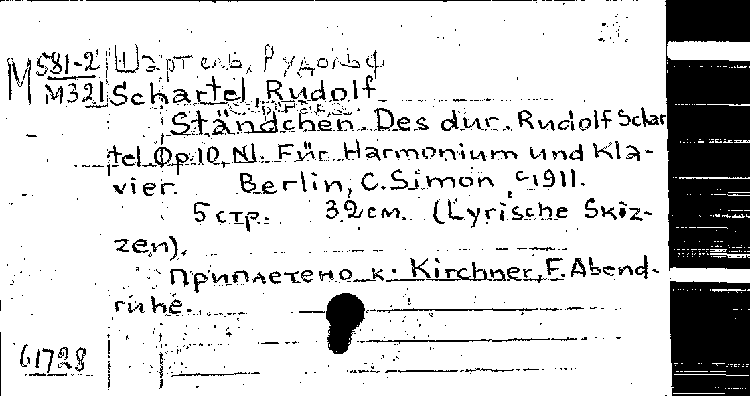 M 581-2 Шартель, Рудольф
M321 Schartel, Rudolf
Ständchen. Des dur. Rudolf Schar
tel Op.10, N1. Für Harmonium und Kla-
vier. Berlin, C. Simon, c1911.
5 стр. 32 см. (Lyrische Skiz-
zen).
Приплетено к: Kirchner, F. Abend-
ruhe.
61728